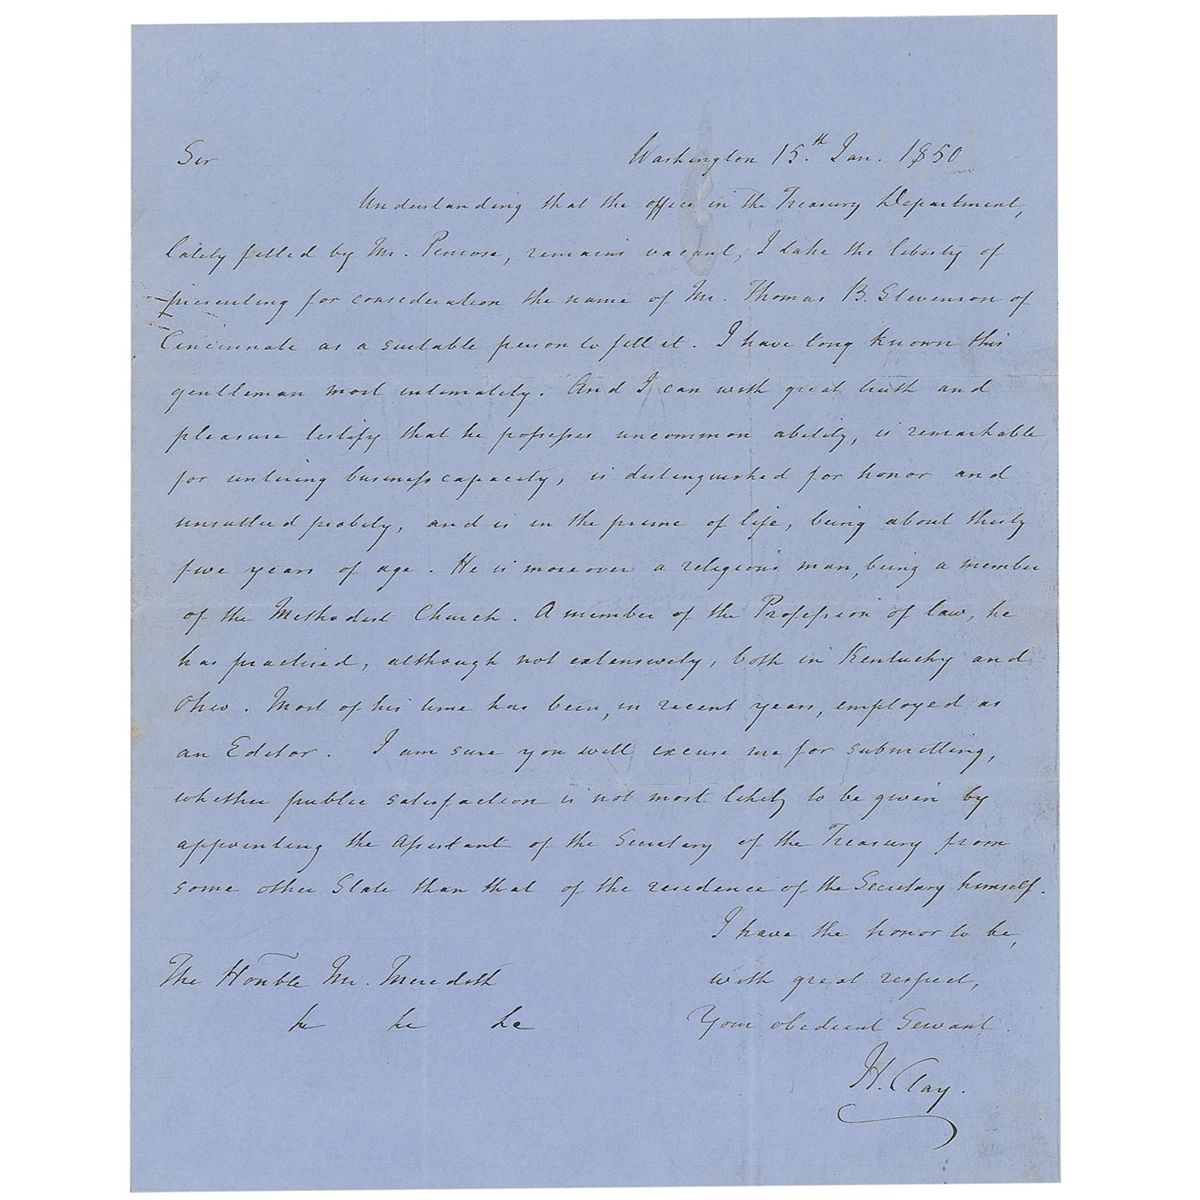 Sir
Washington 15.th Jan. 1850
Understanding that the office in the Treasury Department,
lately filled by Mr. Penrose, remains vacant, I take the liberty of
presenting for consideration the name of Mr. Thomas B. Stevenson of
Cincinnati as a suitable person to fill it. I have long known this
gentleman most intimately. And I can with great truth and
pleasure testify that he possesses uncommon ability, is remarkable
for untiring business capacity, is distinguished for honor and
unsullied probity, and is in the prime of life, being about thirty
five years of age. He is moreover a religious man, being a member
of the Methodist Church. A member of the Profession of law, he
has practised, although not extensively, both in Kentucky and
Ohio. Most of his time has been, in recent years, employed as
an Editor. I am sure you will excuse me for submitting,
whether public satisfaction is not most likely to be given by
appointing the Assistant of the Secretary of the Treasury from
some other State than that of the residence of the Secretary himself.
I have the honor to be,
with great respect,
Your obedient Servant
H. Clay.
The Honble Mr. Meredith
&c &c &c